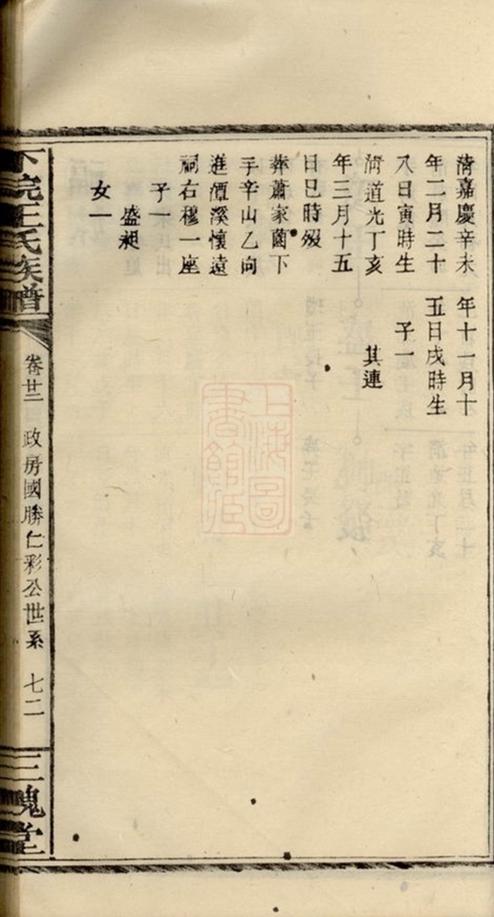 清嘉慶辛未
年二月二十
八日寅時生
清道光丁亥
年三月十五
日巳時歿
葬蕭家園下
手辛山乙向
進溪懷遠
祠右穆一座
子一
盛昶
女一
年十一月十
五日戌時生
子一
其連
王氏族譜
卷廿二
政房國勝仁彩公世系
七二
三槐堂
上海圖
書館藏